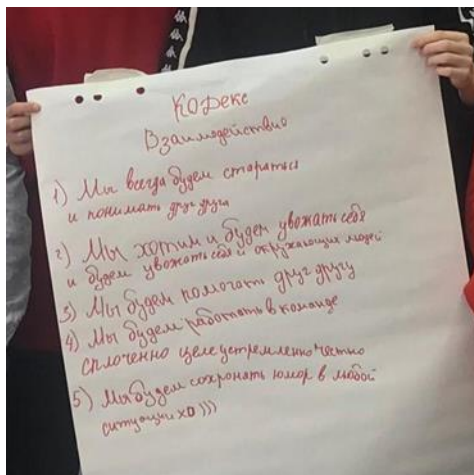 Кодекс
Взаимодействие
1) Мы всегда будем стараться
и понимать друг друга
2) Мы хотим и будем увожать себя
и будем увожать себя и окружающих людей
3) Мы будем помогать друг другу
4) Мы будем работать в команде
сплоченно целеустремленно честно
5) Мы будем сохронять юмор в любой
ситуации хО )))